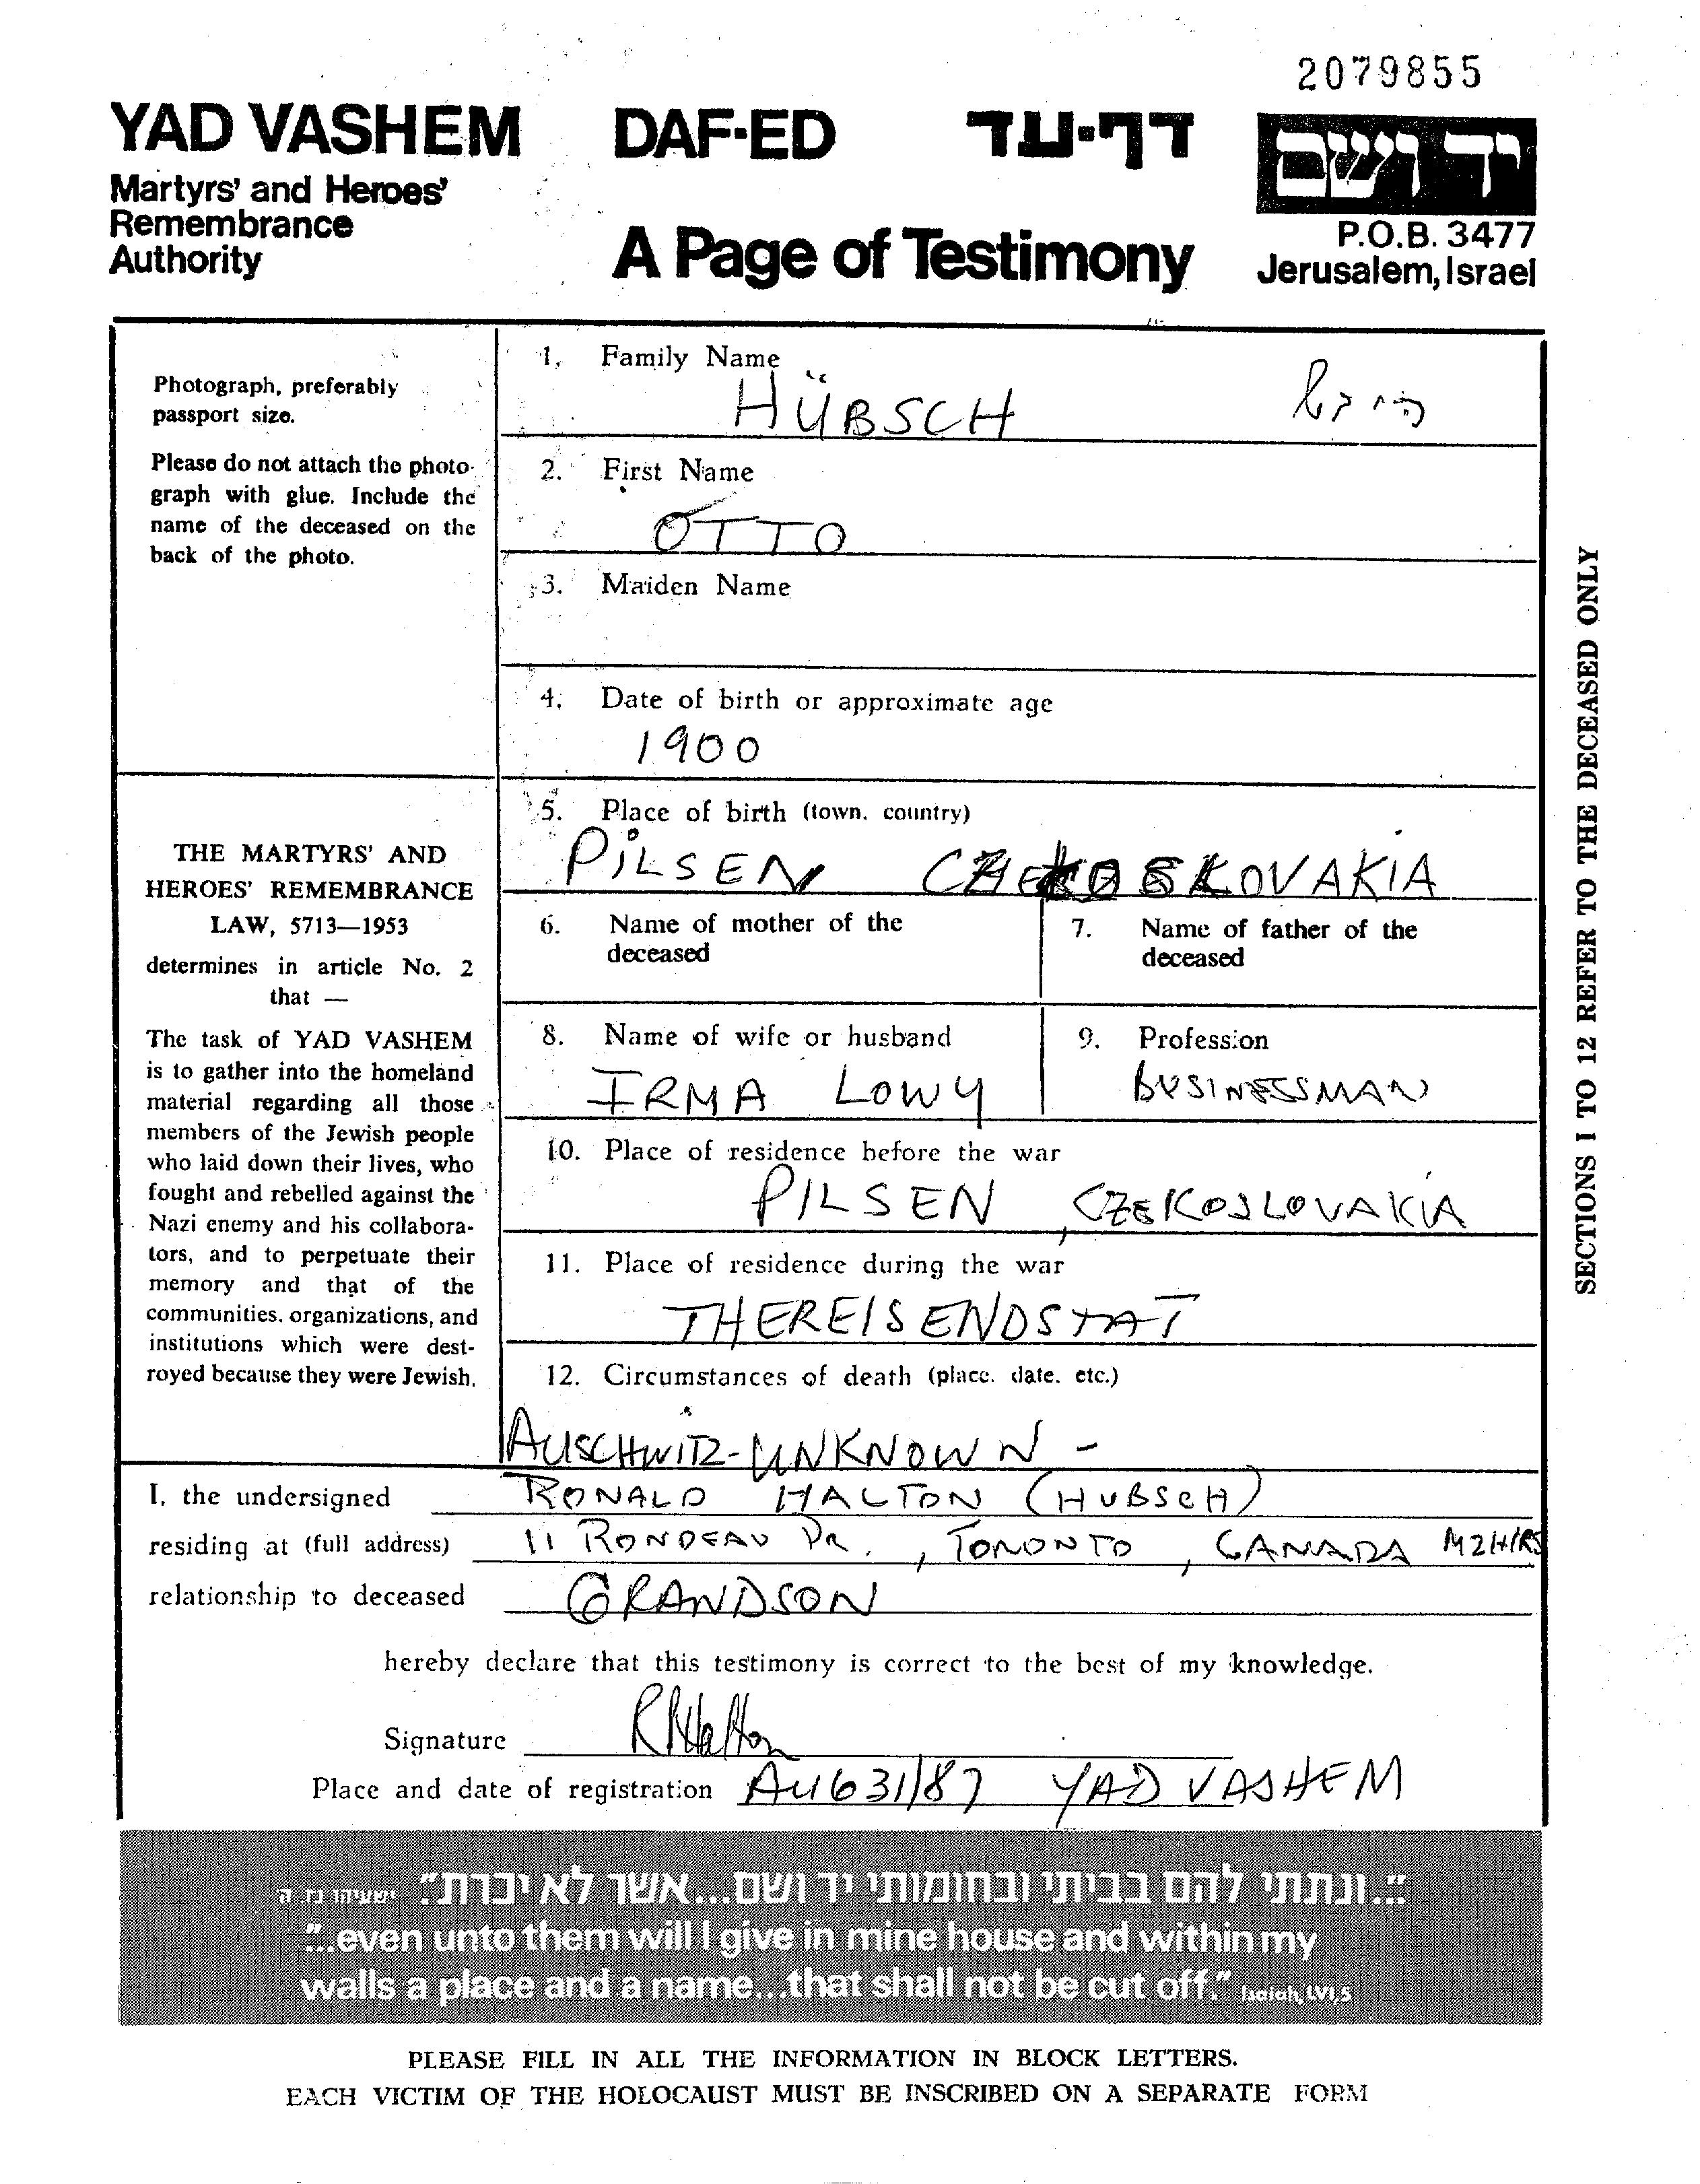 2079855
YAD VASHEM DAF-ED דף-עד יד ושם
Martyrs' and Heroes'
Remembrance
Authority
A Page of Testimony
P.O.B. 3477
Jerusalem, Israel
Photograph, preferably
passport size.
Please do not attach the photo-
graph with glue. Include the
name of the deceased on the
back of the photo.
THE MARTYRS' AND
HEROES' REMEMBRANCE
LAW, 5713—1953
determines in article No. 2
that —
The task of YAD VASHEM
is to gather into the homeland
material regarding all those
members of the Jewish people
who laid down their lives, who
fought and rebelled against the
Nazi enemy and his collabora-
tors, and to perpetuate their
memory and that of the
communities. organizations, and
institutions which were dest-
royed because they were Jewish.
1. Family Name
HÜBSCH היבש
2. First Name
OTTO
3. Maiden Name
4. Date of birth or approximate age
1900
5. Place of birth (town. country)
PILSEN
6. Name of mother of the
deceased
7. Name of father of the
deceased
8. Name of wife or husband
IRMA LOWY
9. Profession
BUSINESSMAN
10. Place of residence before the war
PILSEN, CZEKOSLOVAKIA
11. Place of residence during the war
THEREISENDSTAT
12. Circumstances of death (place. date. etc.)
AUSCHWITZ-UNKNOWN -
I, the undersigned RONALD HALTON (HUBSCH)
residing at (full address) 11 RONDEAU DR., TORONTO, CANADA M2H1R5
relationship to deceased GRANDSON
hereby declare that this testimony is correct to the best of my knowledge.
Signature RHalton
Place and date of registration AUG 31/87 YAD VASHEM
"...ונתתי להם בביתי ובחומותי יד ושם...אשר לא יכרת". ישעיהו נ"ו ה'
"...even unto them will I give in mine house and within my
walls a place and a name...that shall not be cut off." Isaiah, LVI,5
PLEASE FILL IN ALL THE INFORMATION IN BLOCK LETTERS.
EACH VICTIM OF THE HOLOCAUST MUST BE INSCRIBED ON A SEPARATE FORM
SECTIONS 1 TO 12 REFER TO THE DECEASED ONLY